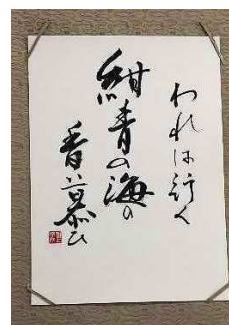 われは行く
紺青の海の
香い慕ひ